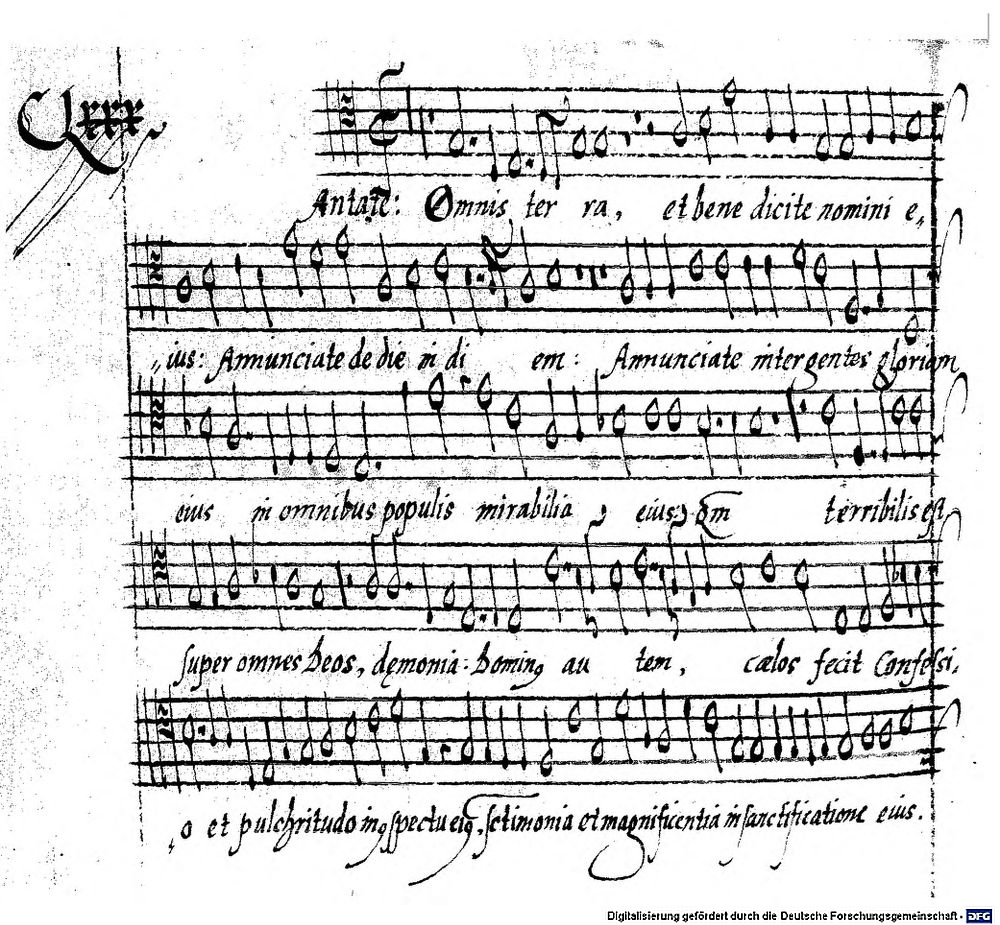 Clxxx.
Antate: Omnis ter ra, et bene dicite nomini e,,
,,ius: Annunciate de die in di em: Annunciate inter gentes gloriam
eius in omnibus populis mirabilia eius: qm terribilis est
super omnes Deos, dęmonia: Dominꝯ au tem, cœlos fecit Confessi,
,,o et pulchritudo in ꝯspectu eiꝯ, sctimonia et magnificentia in sanctificatione eius.
Digitalisierung gefördert durch die Deutsche Forschungsgemeinschaft - DFG